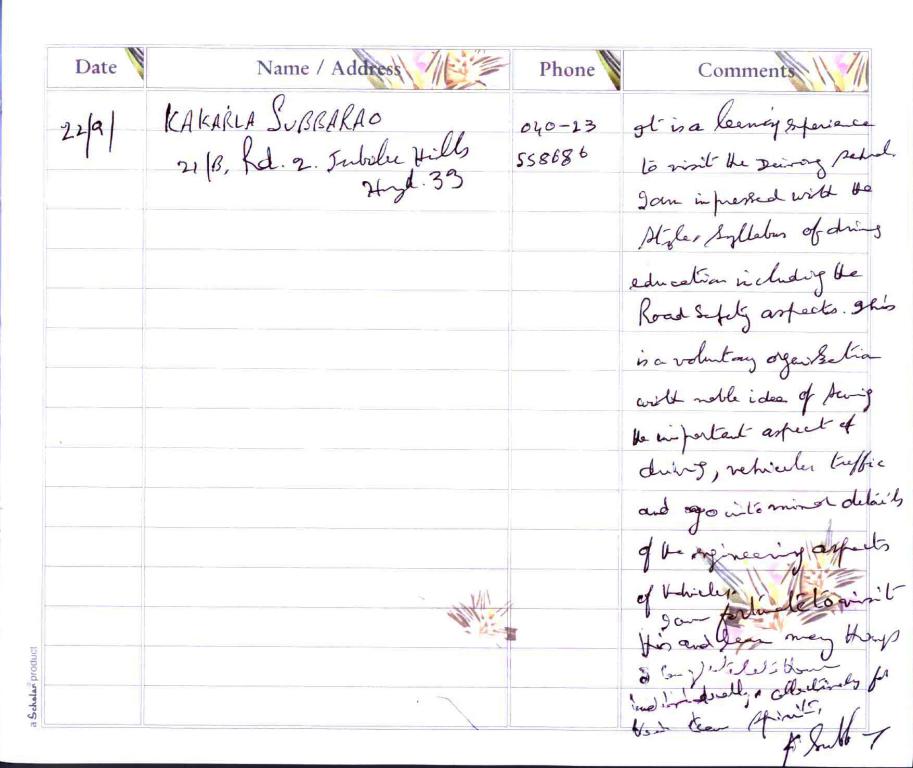 Date Name / Address Phone Comments
22/9/ KAKARLA SUBBARAO 040-23
558686
21/B, Rd. 2. Jubilee Hills
Hyd. 33
It is a learning experience
to visit the Driving School.
I am impressed with the
Style, Syllabus of driving
education including the
Road Safety aspects. This
is a voluntary organisation
with noble idea of
the important aspect of
driving, vehicular traffic
and go into minor details
of the engineering aspects
of vehicles.
I am fortunate to visit
this and learn many things
I
individually & collectively for
their team spirit.
K Subb
a Scholar product